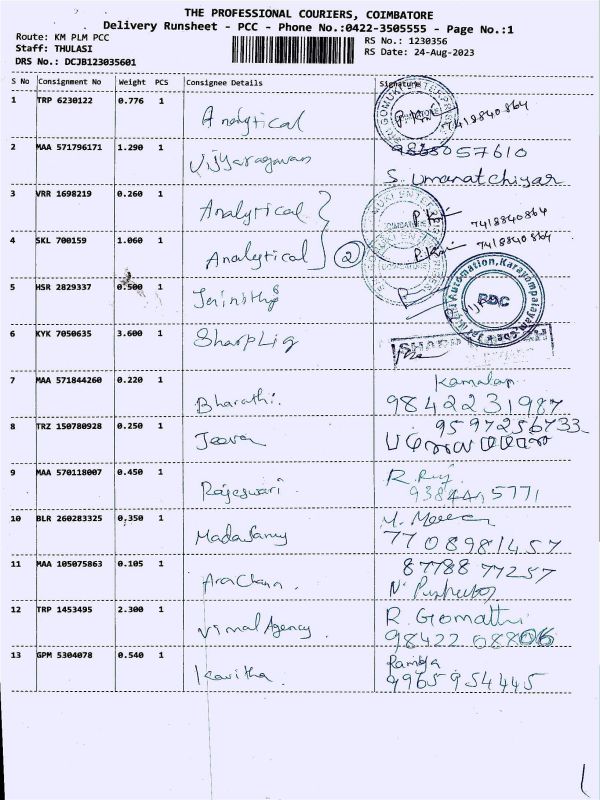 THE PROFESSIONAL COURIERS, COIMBATORE
Delivery Runsheet - PCC - Phone No.:0422-3505555 - Page No.:1
Route: KM PLM PCC
RS No.: 1230356
Staff: THULASI
RS Date: 24-Aug-2023
DRS No.: DCJB123035601
S No Consignment No Weight PCS Consignee Details Signature
1 TRP 6230122 0.776 1 Analytical 7418840864
2 MAA 571796171 1.290 1 Vijyaragavan 9865057610
S. Umanatchiyar
3 VRR 1698219 0.260 1 Analytical 7418840864
4 SKL 700159 1.060 1 Analytical 2 7418840864
5 HSR 2829337 0.500 1
BDC
6 KYK 7050635 3.600 1 SharpLig
7 MAA 571844260 0.220 1 Bharathi. Kamalam
9842231987
8 TRZ 150780928 0.250 1 Jeeva 9597256733
9 MAA 570118007 0.450 1 Rajeswari
10 BLR 260283325 0.350 1 Madasamy
7708981457
11 MAA 105075863 0.105 1 87788 77257
12 TRP 1453495 2.300 1 Vimal Agency. R. Gomathi
98422 08806
13 GPM 5304078 0.540 1 Kavitha. Ramya
9965954445